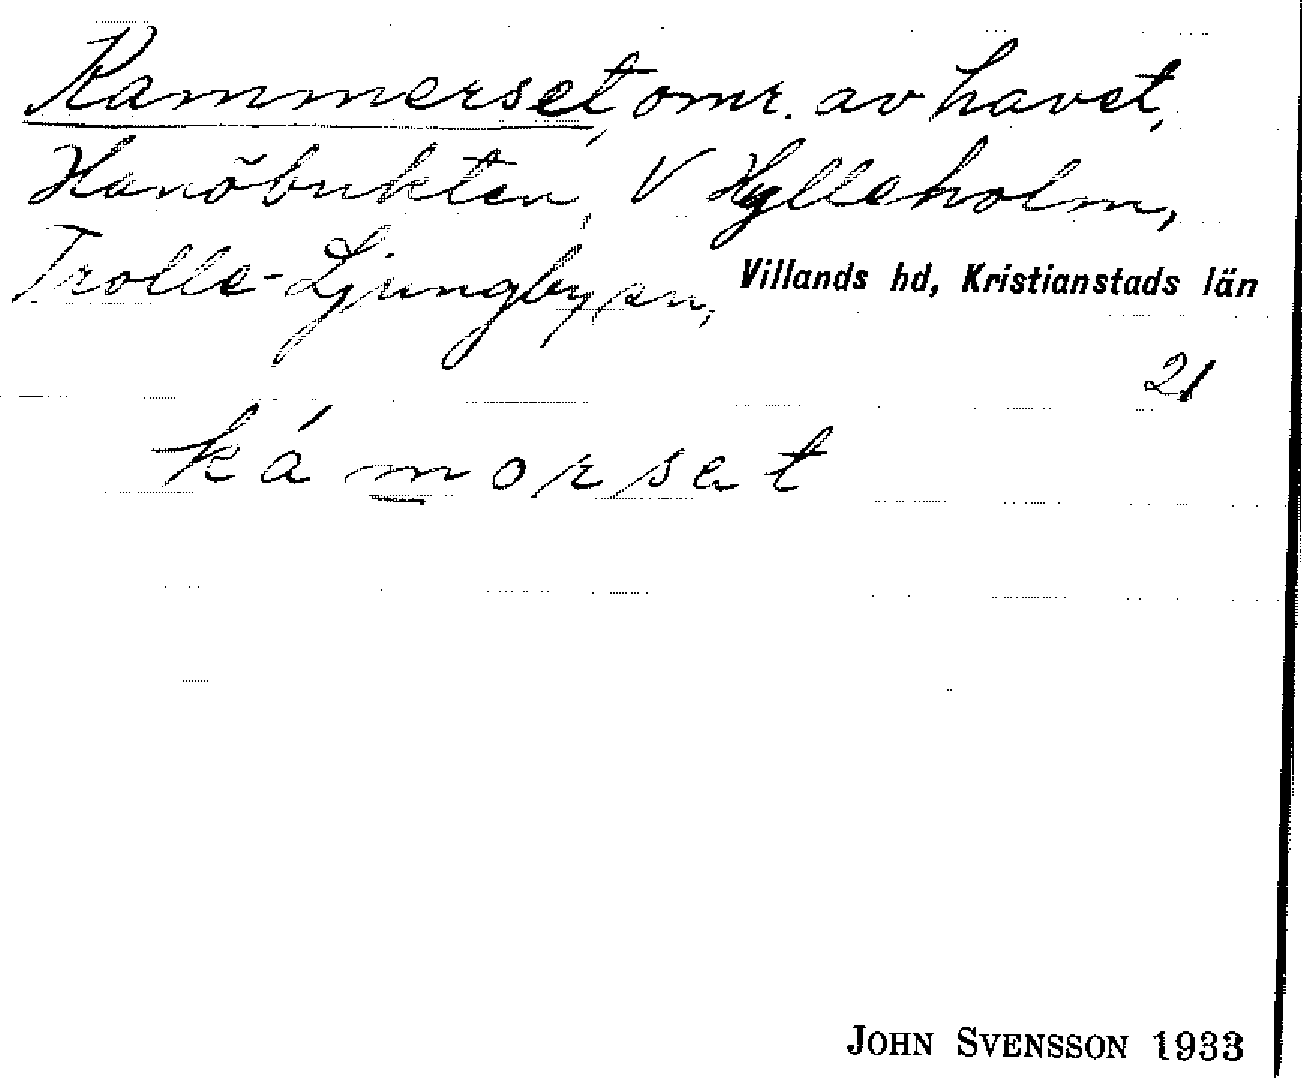 Kammerset, omr. av havet,
Hanöbukten, V Hylleholm,
Trolle-Ljungby sn, Villands hd, Kristianstads län
21
kámorset
JOHN SVENSSON 1933